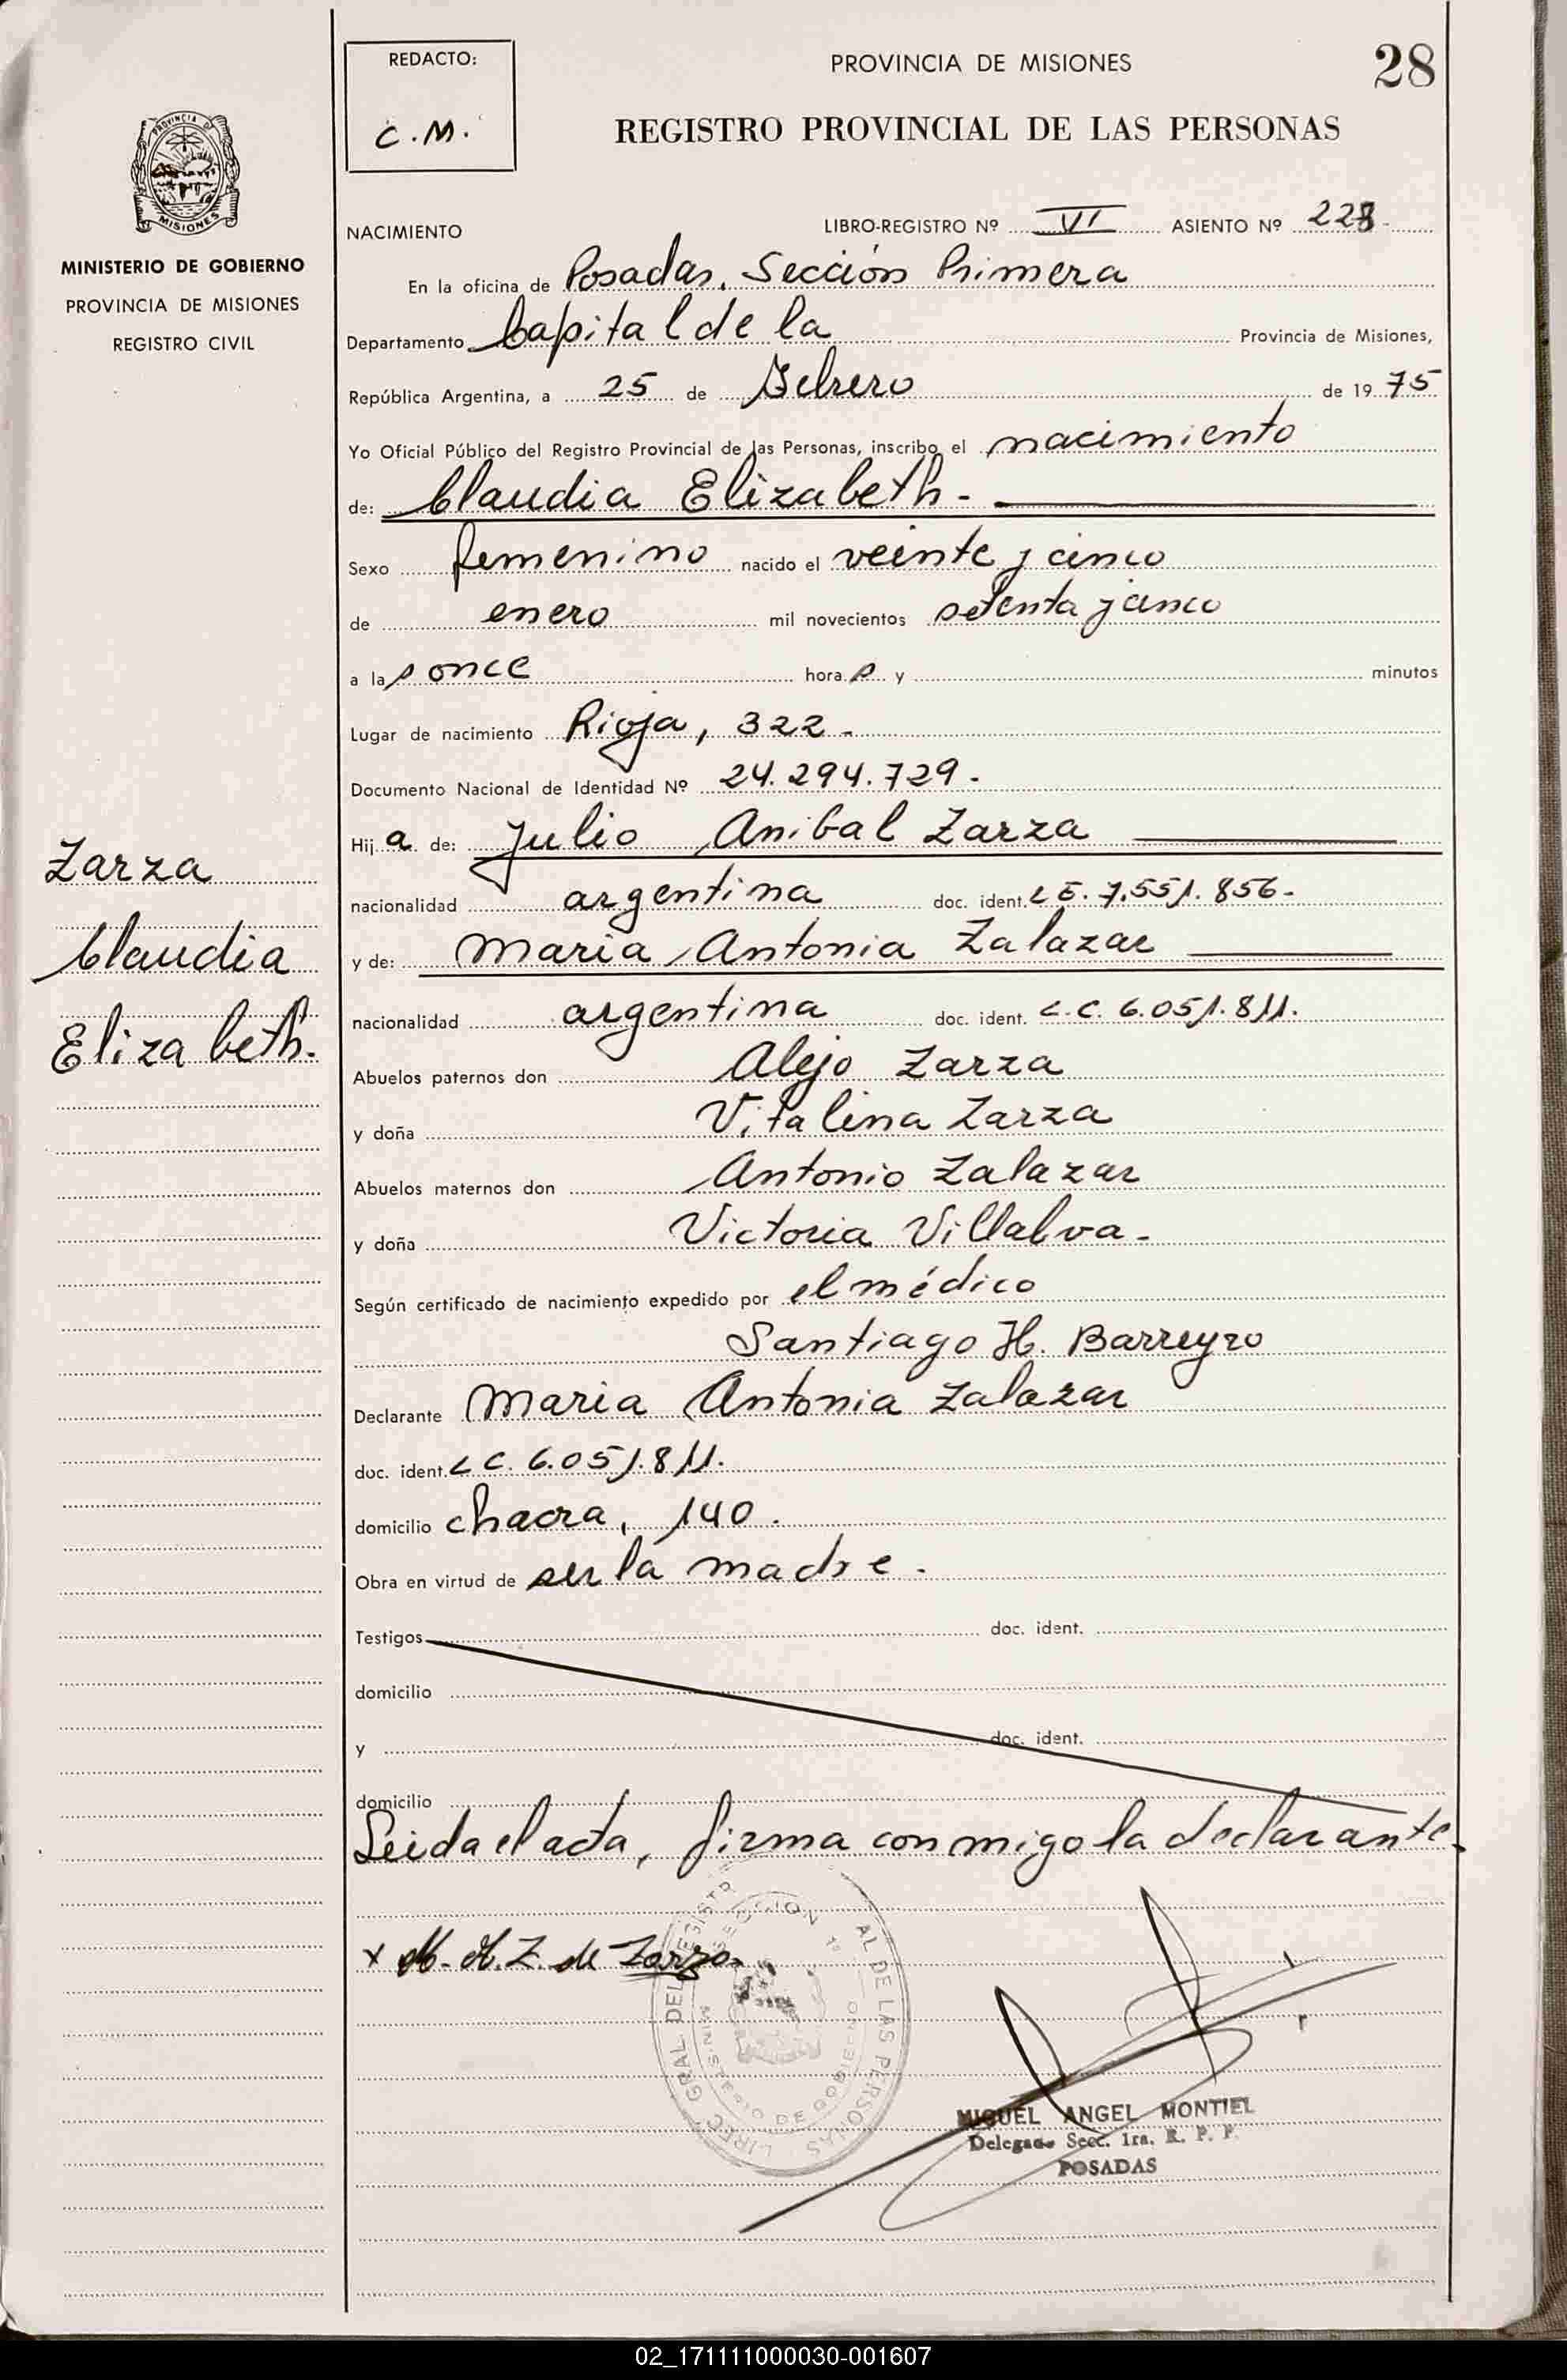 REDACTO:
C.M.
PROVINCIA DE MISIONES
28
REGISTRO PROVINCIAL DE LAS PERSONAS
PROVINCIA D
MISIONES
MINISTERIO DE GOBIERNO
PROVINCIA DE MISIONES
REGISTRO CIVIL
NACIMIENTO LIBRO-REGISTRO Nº VI ASIENTO Nº 228-
En la oficina de Posadas, Sección Primera
Departamento Capital de la Provincia de Misiones,
República Argentina, a 25 de Febrero de 1975
Yo Oficial Público del Registro Provincial de las Personas, inscribo el nacimiento
de: Claudia Elizabeth-
Sexo femenino nacido el veinte y cinco
de enero mil novecientos setenta y cinco
a las once horas y minutos
Lugar de nacimiento Rioja, 322-
Documento Nacional de Identidad Nº 24.294.729-
Hija de: Julio Anibal Zarza
nacionalidad argentina doc. ident. LE. 7.551.856-
y de: Maria Antonia Zalazar
nacionalidad argentina doc. ident. L.C. 6.051.811.
Abuelos paternos don Alejo Zarza
y doña Vitalina Zarza
Abuelos maternos don Antonio Zalazar
y doña Victoria Villalva-
Según certificado de nacimiento expedido por el médico
Santiago H. Barreyro
Declarante Maria Antonia Zalazar
doc. ident. LC. 6.051.811.
domicilio chacra, 140.
Obra en virtud de ser la madre.
Testigos doc. ident.
domicilio
y doc. ident.
domicilio
Leida el acta, firma conmigo la declarante.
Zarza
Claudia
Elizabeth.
x M. A. Z. de Zarza
GRAL DEL REGISTR AL DE LAS PERSONAS
SECCION 1ª
MINISTERIO DE GOBIERNO
MIGUEL ANGEL MONTIEL
Delegado Secc. 1ra. R. P. P.
POSADAS
02_171111000030-001607